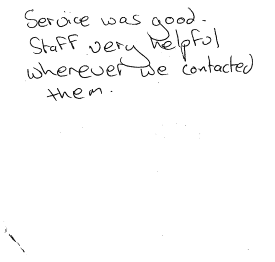 Service was good.
Staff very helpful
whenever we contacted
them.